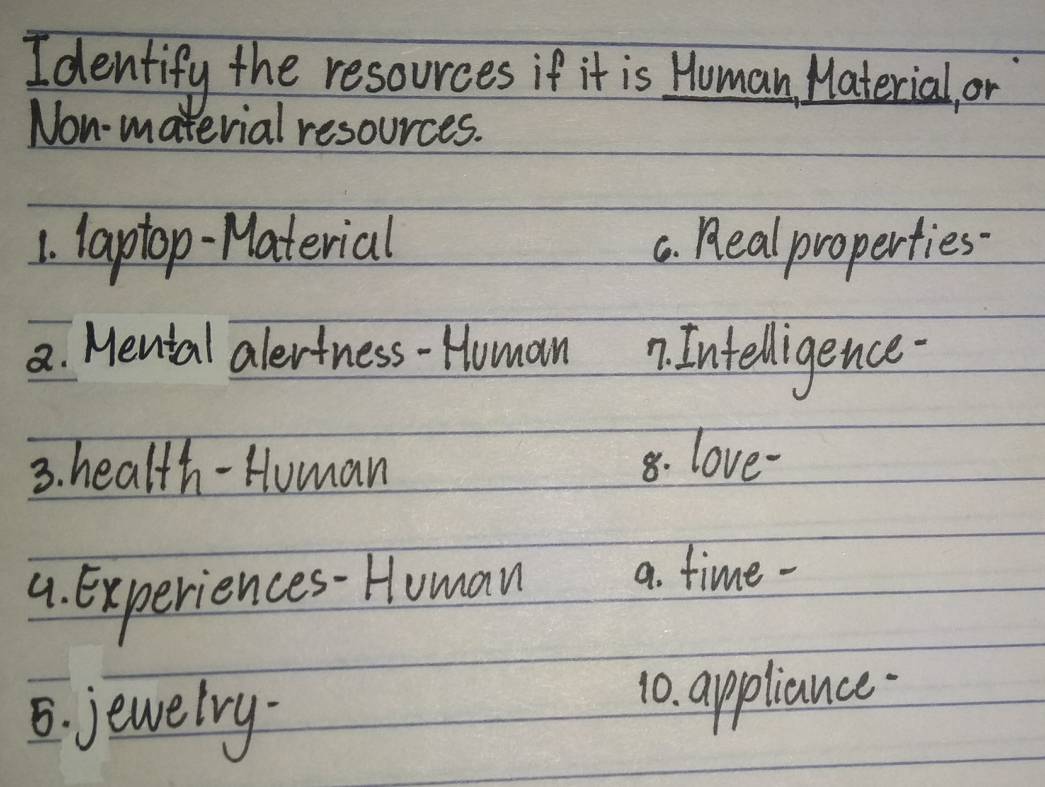 Identify the resources if it is Human, Material, or
Non-material resources.
1. laptop-Material
2. Mental alertness-Human
3. health-Human
4. Experiences-Human
5. jewelry-
6. Real properties-
7. Intelligence-
8. love-
9. time-
10. appliance-